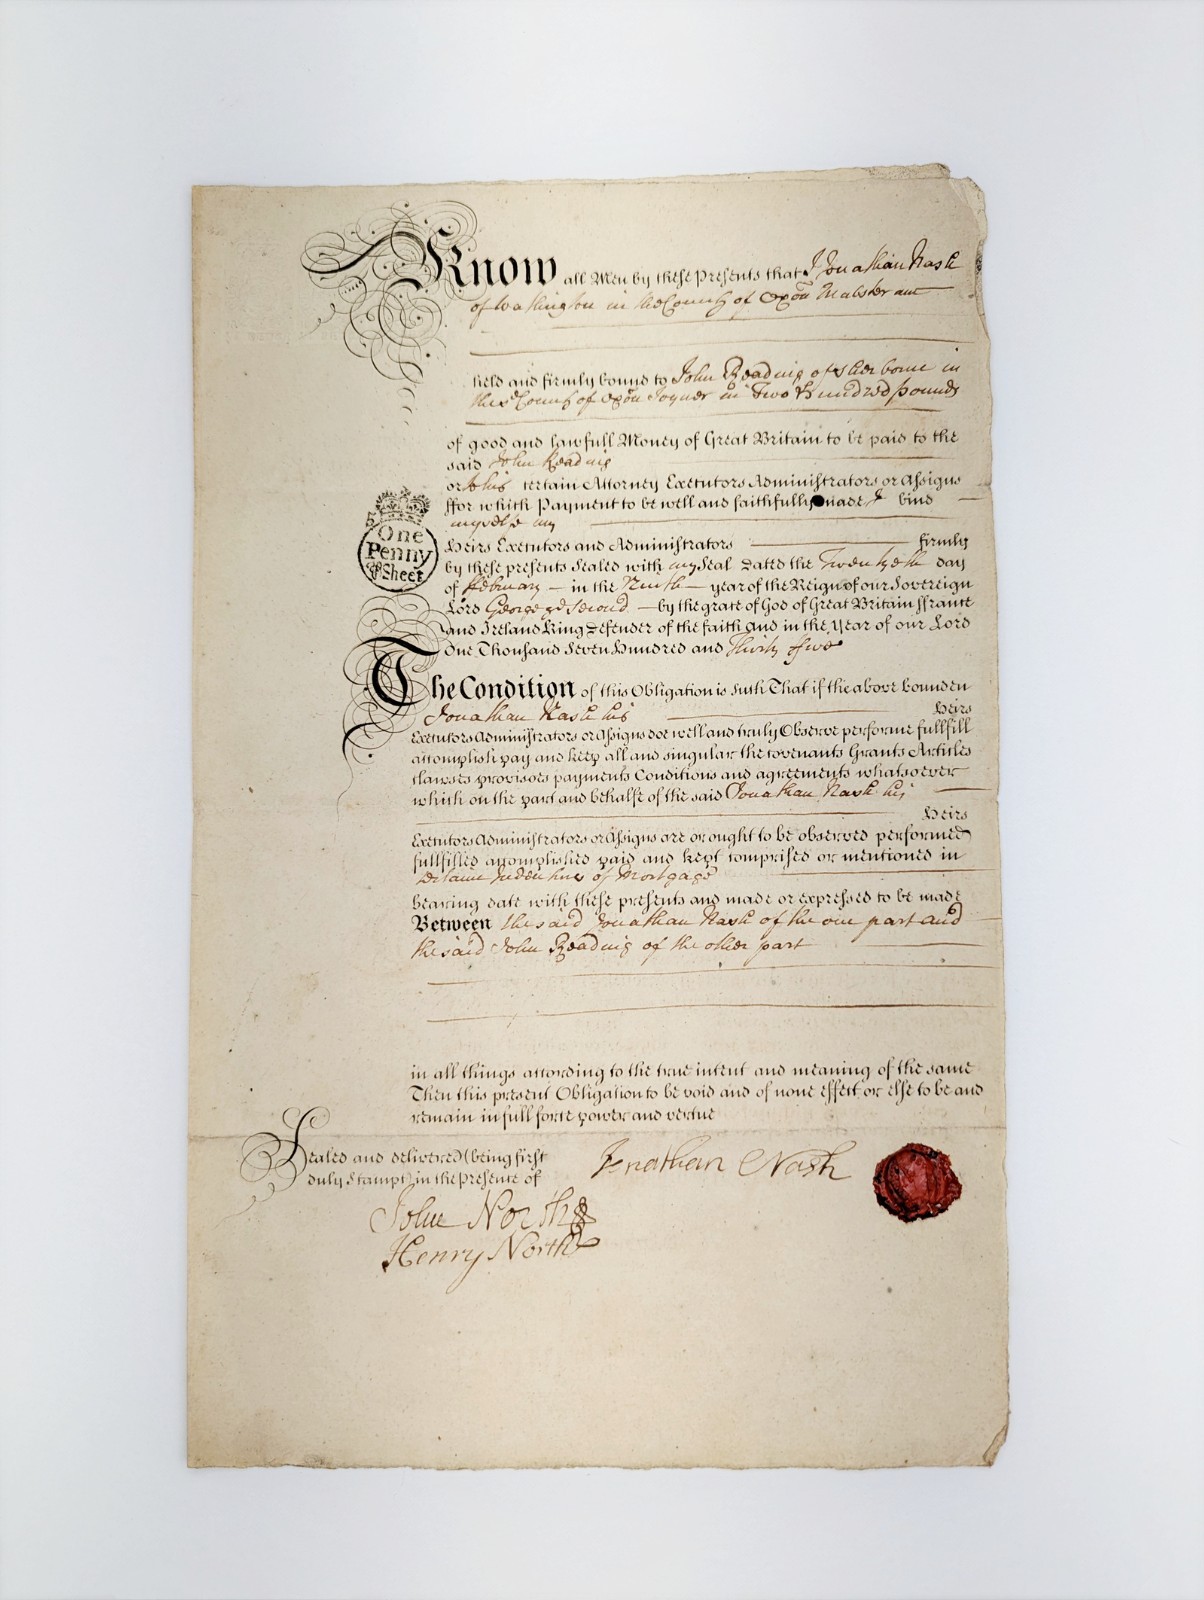 Know all Men by these Presents that I Jonathan Nash
of Washington in the County of Oxon
held and firmly bound to John Reading of Sherborne in
the sd County of Oxon Joyner in Two Hundred pounds
of good and lawfull Money of Great Britain to be paid to the
said John Reading
or to his certain Attorney Executors Administrators or Assigns
ffor which Payment to be well and faithfully made I bind
myself & my
Heirs Executors and Administrators firmly
by these presents Sealed with my Seal Dated the Twentyeth day
of ffebruary in the Ninth year of the Reign of our Sovereign
Lord George ye Second by the grace of God of Great Britain ffrance
and Ireland King Defender of the faith and in the Year of our Lord
One Thousand Seven Hundred and Thirty ffive
One
Penny
Sheet
The Condition of this Obligation is Such That if the above bounden
Jonathan Nash his Heirs
Executors Administrators or Assigns doe well and truly Observe performe fullfill
accomplish pay and keep all and singular the covenants Grants Articles
clawses provisoes payments Conditions and agreements whatsoever
which on the part and behalfe of the said Jonathan Nash his
Heirs
Executors Administrators or Assigns are or ought to be observed performed
fullfilled accomplished paid and kept comprised or mentioned in
of Mortgage
bearing date with these presents and made or expressed to be made
Between the said Jonathan Nash of the one part and
the said John Reading of the other part
in all things according to the true intent and meaning of the same
Then this present Obligation to be void and of none effect or else to be and
remain in full force power and vertue
Sealed and delivered (being first
duly Stampt) in the Presence of
Jonathan Nash
John North
Henry North